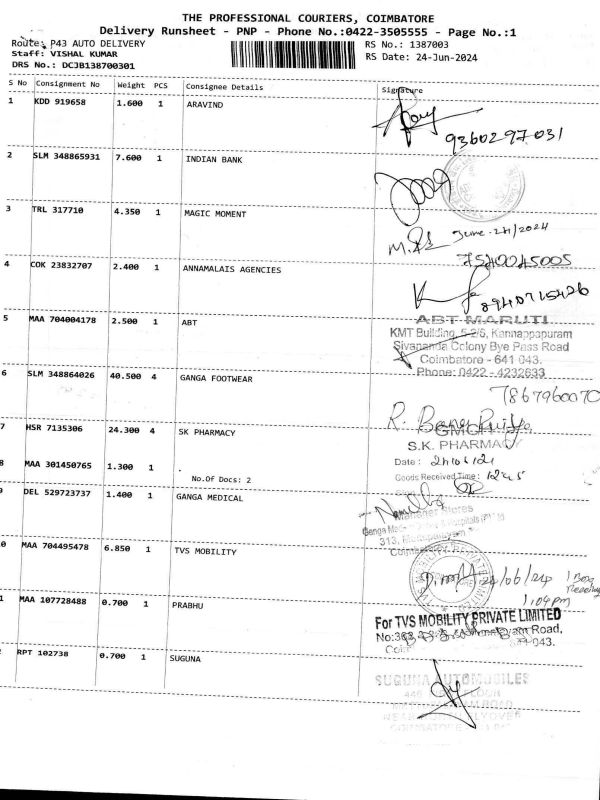 THE PROFESSIONAL COURIERS, COIMBATORE
Delivery Runsheet - PNP - Phone No.:0422-3505555 - Page No.:1
Route: P43 AUTO DELIVERY
RS No.: 1387003
Staff: VISHAL KUMAR
RS Date: 24-Jun-2024
DRS No.: DCJB138700301
S No Consignment No Weight PCS Consignee Details Signature
1 KDD 919658 1.600 1 ARAVIND
9360297031
2 SLM 348865931 7.600 1 INDIAN BANK
3 TRL 317710 4.350 1 MAGIC MOMENT
June-24/2024
7540045005
4 COK 23832707 2.400 1 ANNAMALAIS AGENCIES
8940715426
5 MAA 704004178 2.500 1 ABT
ABT MARUTI
KMT Building, 5-2/6, Kannappapuram
Sivananda Colony Bye Pass Road
Coimbatore - 641 043.
Phone: 0422 - 4232633
6 SLM 348864026 40.500 4 GANGA FOOTWEAR
7867960070
7 HSR 7135306 24.300 4 SK PHARMACY
GMCH
S.K. PHARMACY
Date:
Goods Received Time:
8 MAA 301450765 1.300 1 .
No.Of Docs: 2
9 DEL 529723737 1.400 1 GANGA MEDICAL
0 MAA 704495478 6.850 1 TVS MOBILITY
24/06/24 1 Box
1:04pm
1 MAA 107728488 0.700 1 PRABHU
For TVS MOBILITY PRIVATE LIMITED
Road,
043.
2 RPT 102738 0.700 1 SUGUNA
SUGUNA AUTOMOBILES